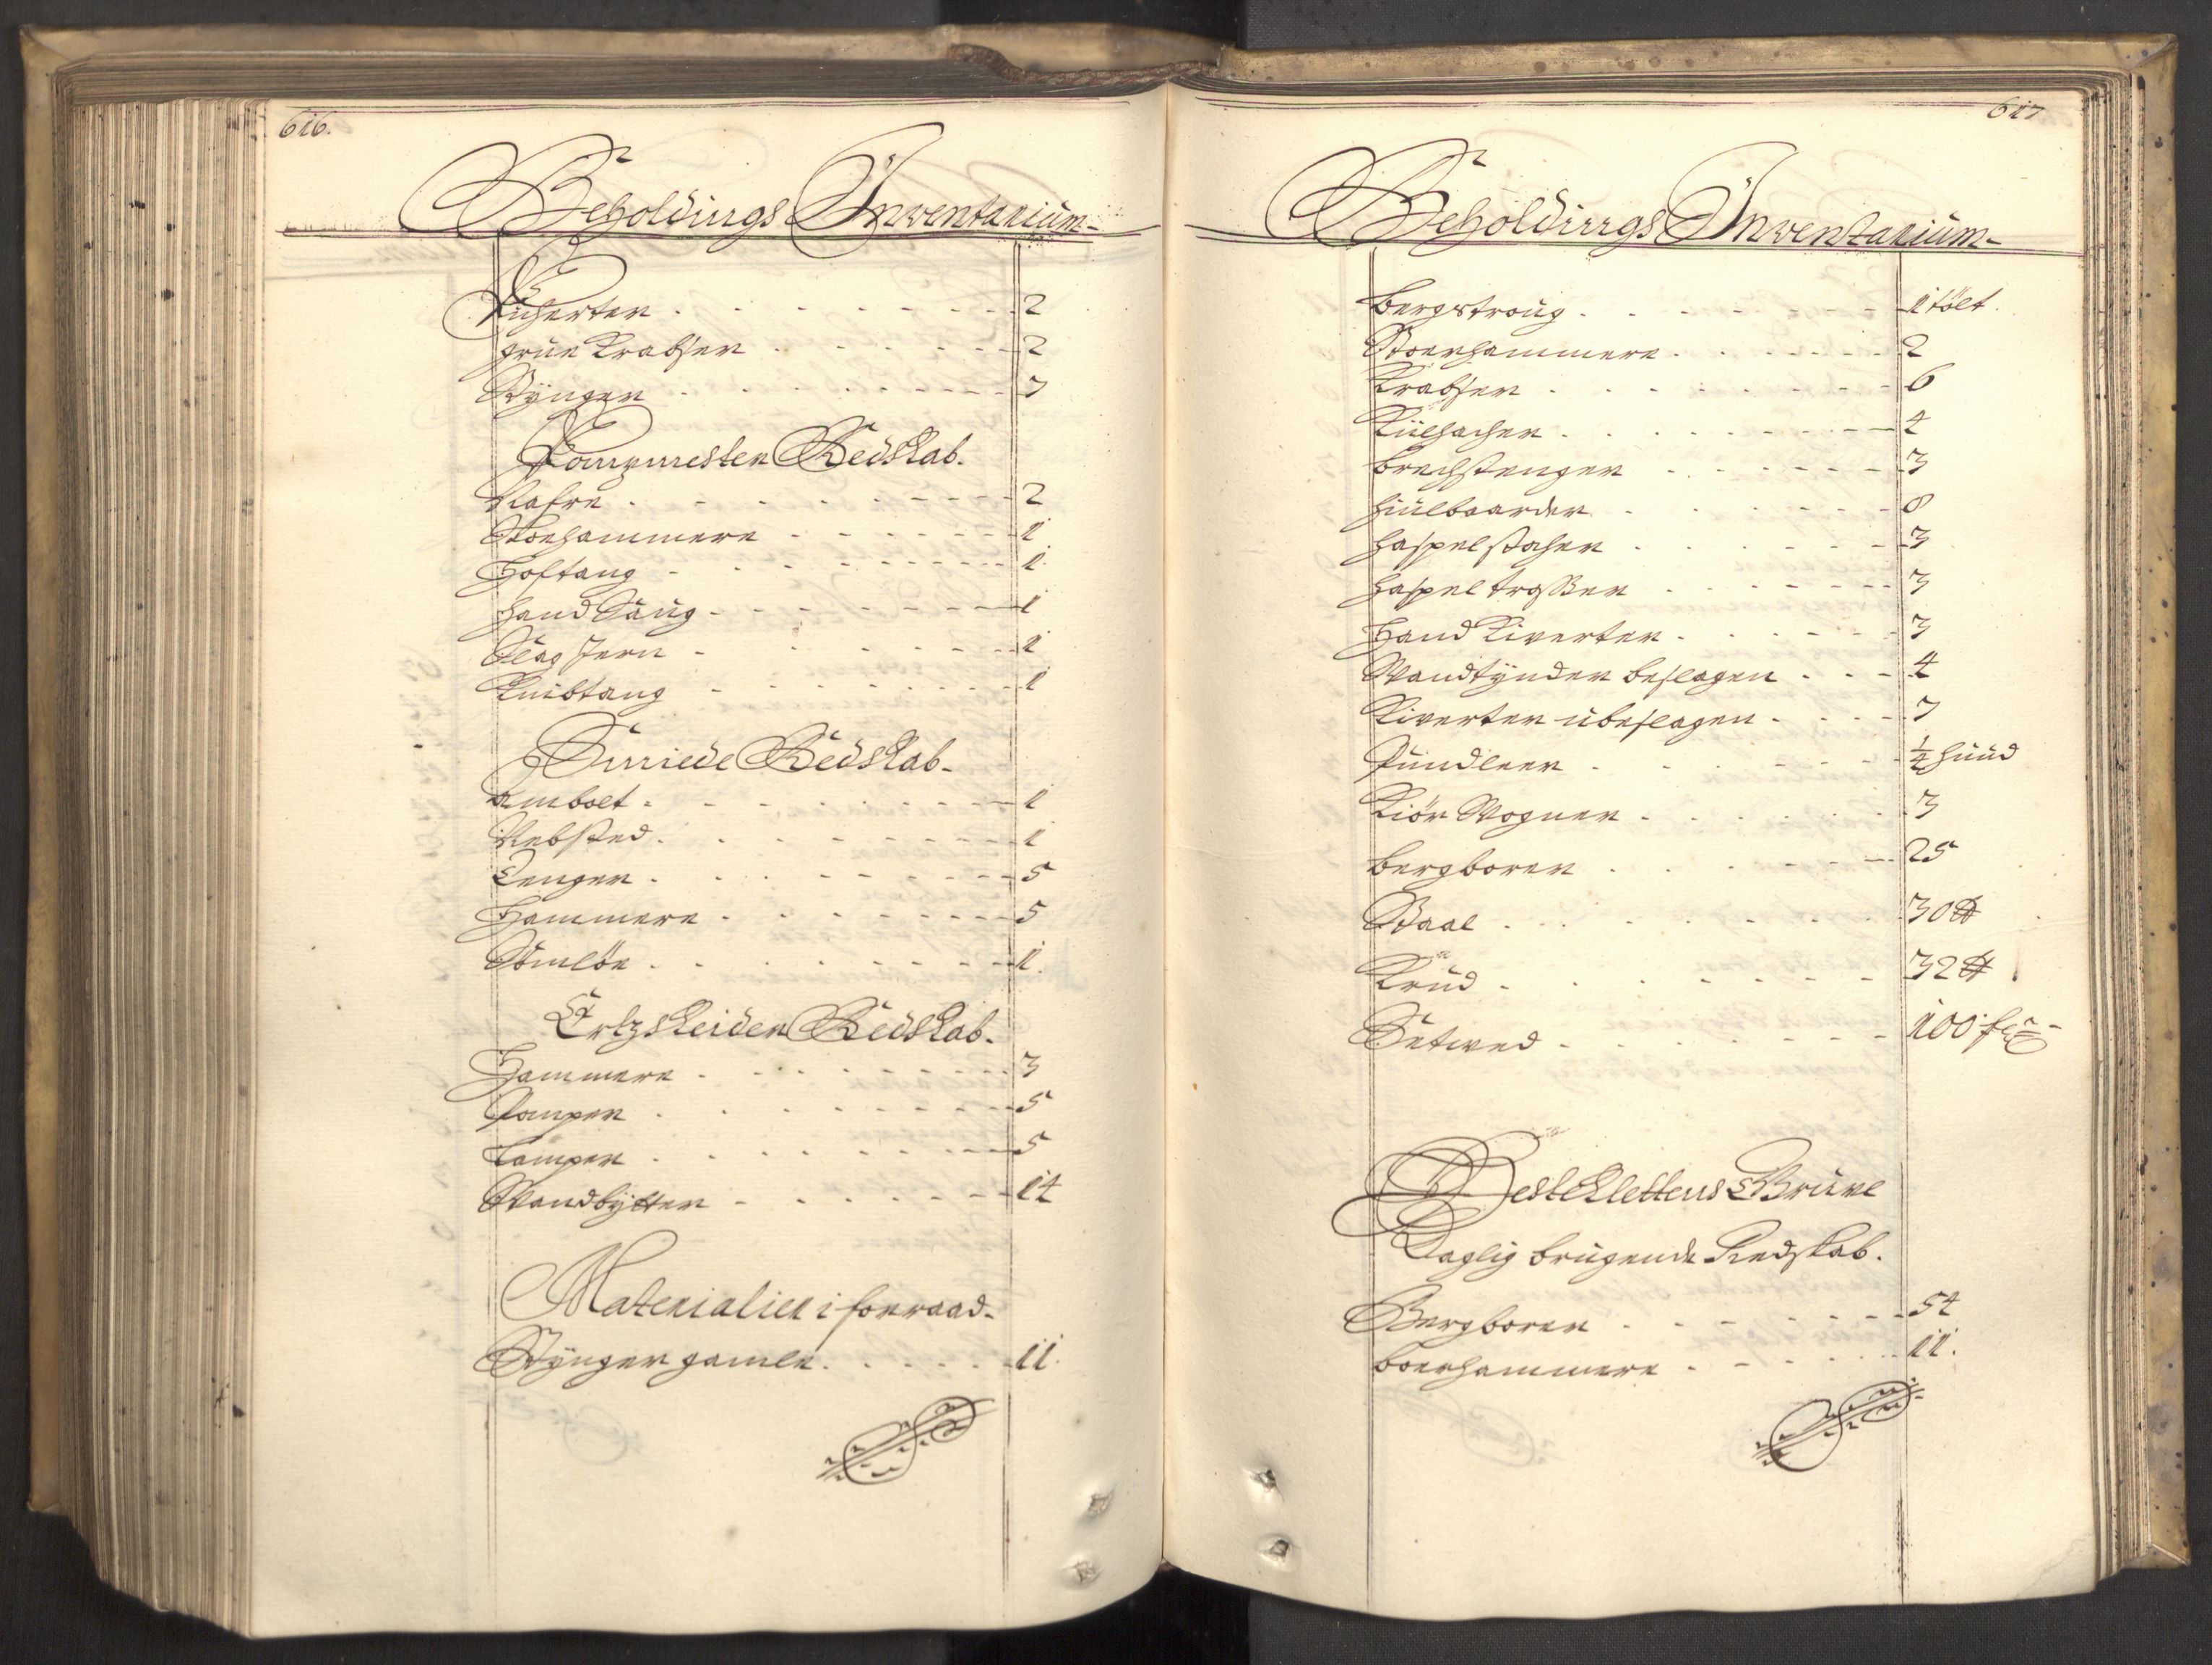 616.
Beholdings Inventarium-
Kiherter . . . . . . . . 2
grue Krabser . . . . . . 2
Stÿnger . . . . . . . . 7
Pompmester Redskab.
Nafre . . . . . . . . 2
Storhammere . . . . . . 1
Hoftang . . . . . . . . 1
Hand Saug . . . . . . . 1
Slag Jern . . . . . . . 1
Knibtang . . . . . . . 1
Smiede Redskab-
Ambolt . . . . . . . . 1
Nebsted . . . . . . . . 1
Tenger . . . . . . . . 5
Hammere . . . . . . . . 5
Sömlöe . . . . . . . . 1.
Ertzskeider Redskab-
Hammere . . . . . . . . 3
Pomper . . . . . . . . 5
Lamper . . . . . . . . 5
Wandbÿtter . . . . . . 14
Materialier i forraad-
Stÿnger gamle . . . . . 11.
617
Beholdings Inventarium-
Bergstroug . . . . . . . 1 tölt.
Storhammere . . . . . . 2
Krabser . . . . . . . . 6
Kiilhacher . . . . . . . 4
Brechstenger . . . . . . 3
Hiulbaarder . . . . . . 8
Haspelstoher . . . . . . 3
Haspel troßer . . . . . 3
Hand Kiverter . . . . . 3
Wandtÿnder beslagen . . . 4
Kiverter ubeslagen . . . . 7
Pundleer . . . . . . . ¼ Huud
Kiör Wogner . . . . . . 3
Bergborer . . . . . . . 25
Staal . . . . . . . . 30 ℔
Krud . . . . . . . . 32 ℔
Setwed . . . . . . . . 100 f
Hestklettens Gruve
Daglig brugende Redskab.
Bergborer . . . . . . . 54
Boerhammere . . . . . . 11.